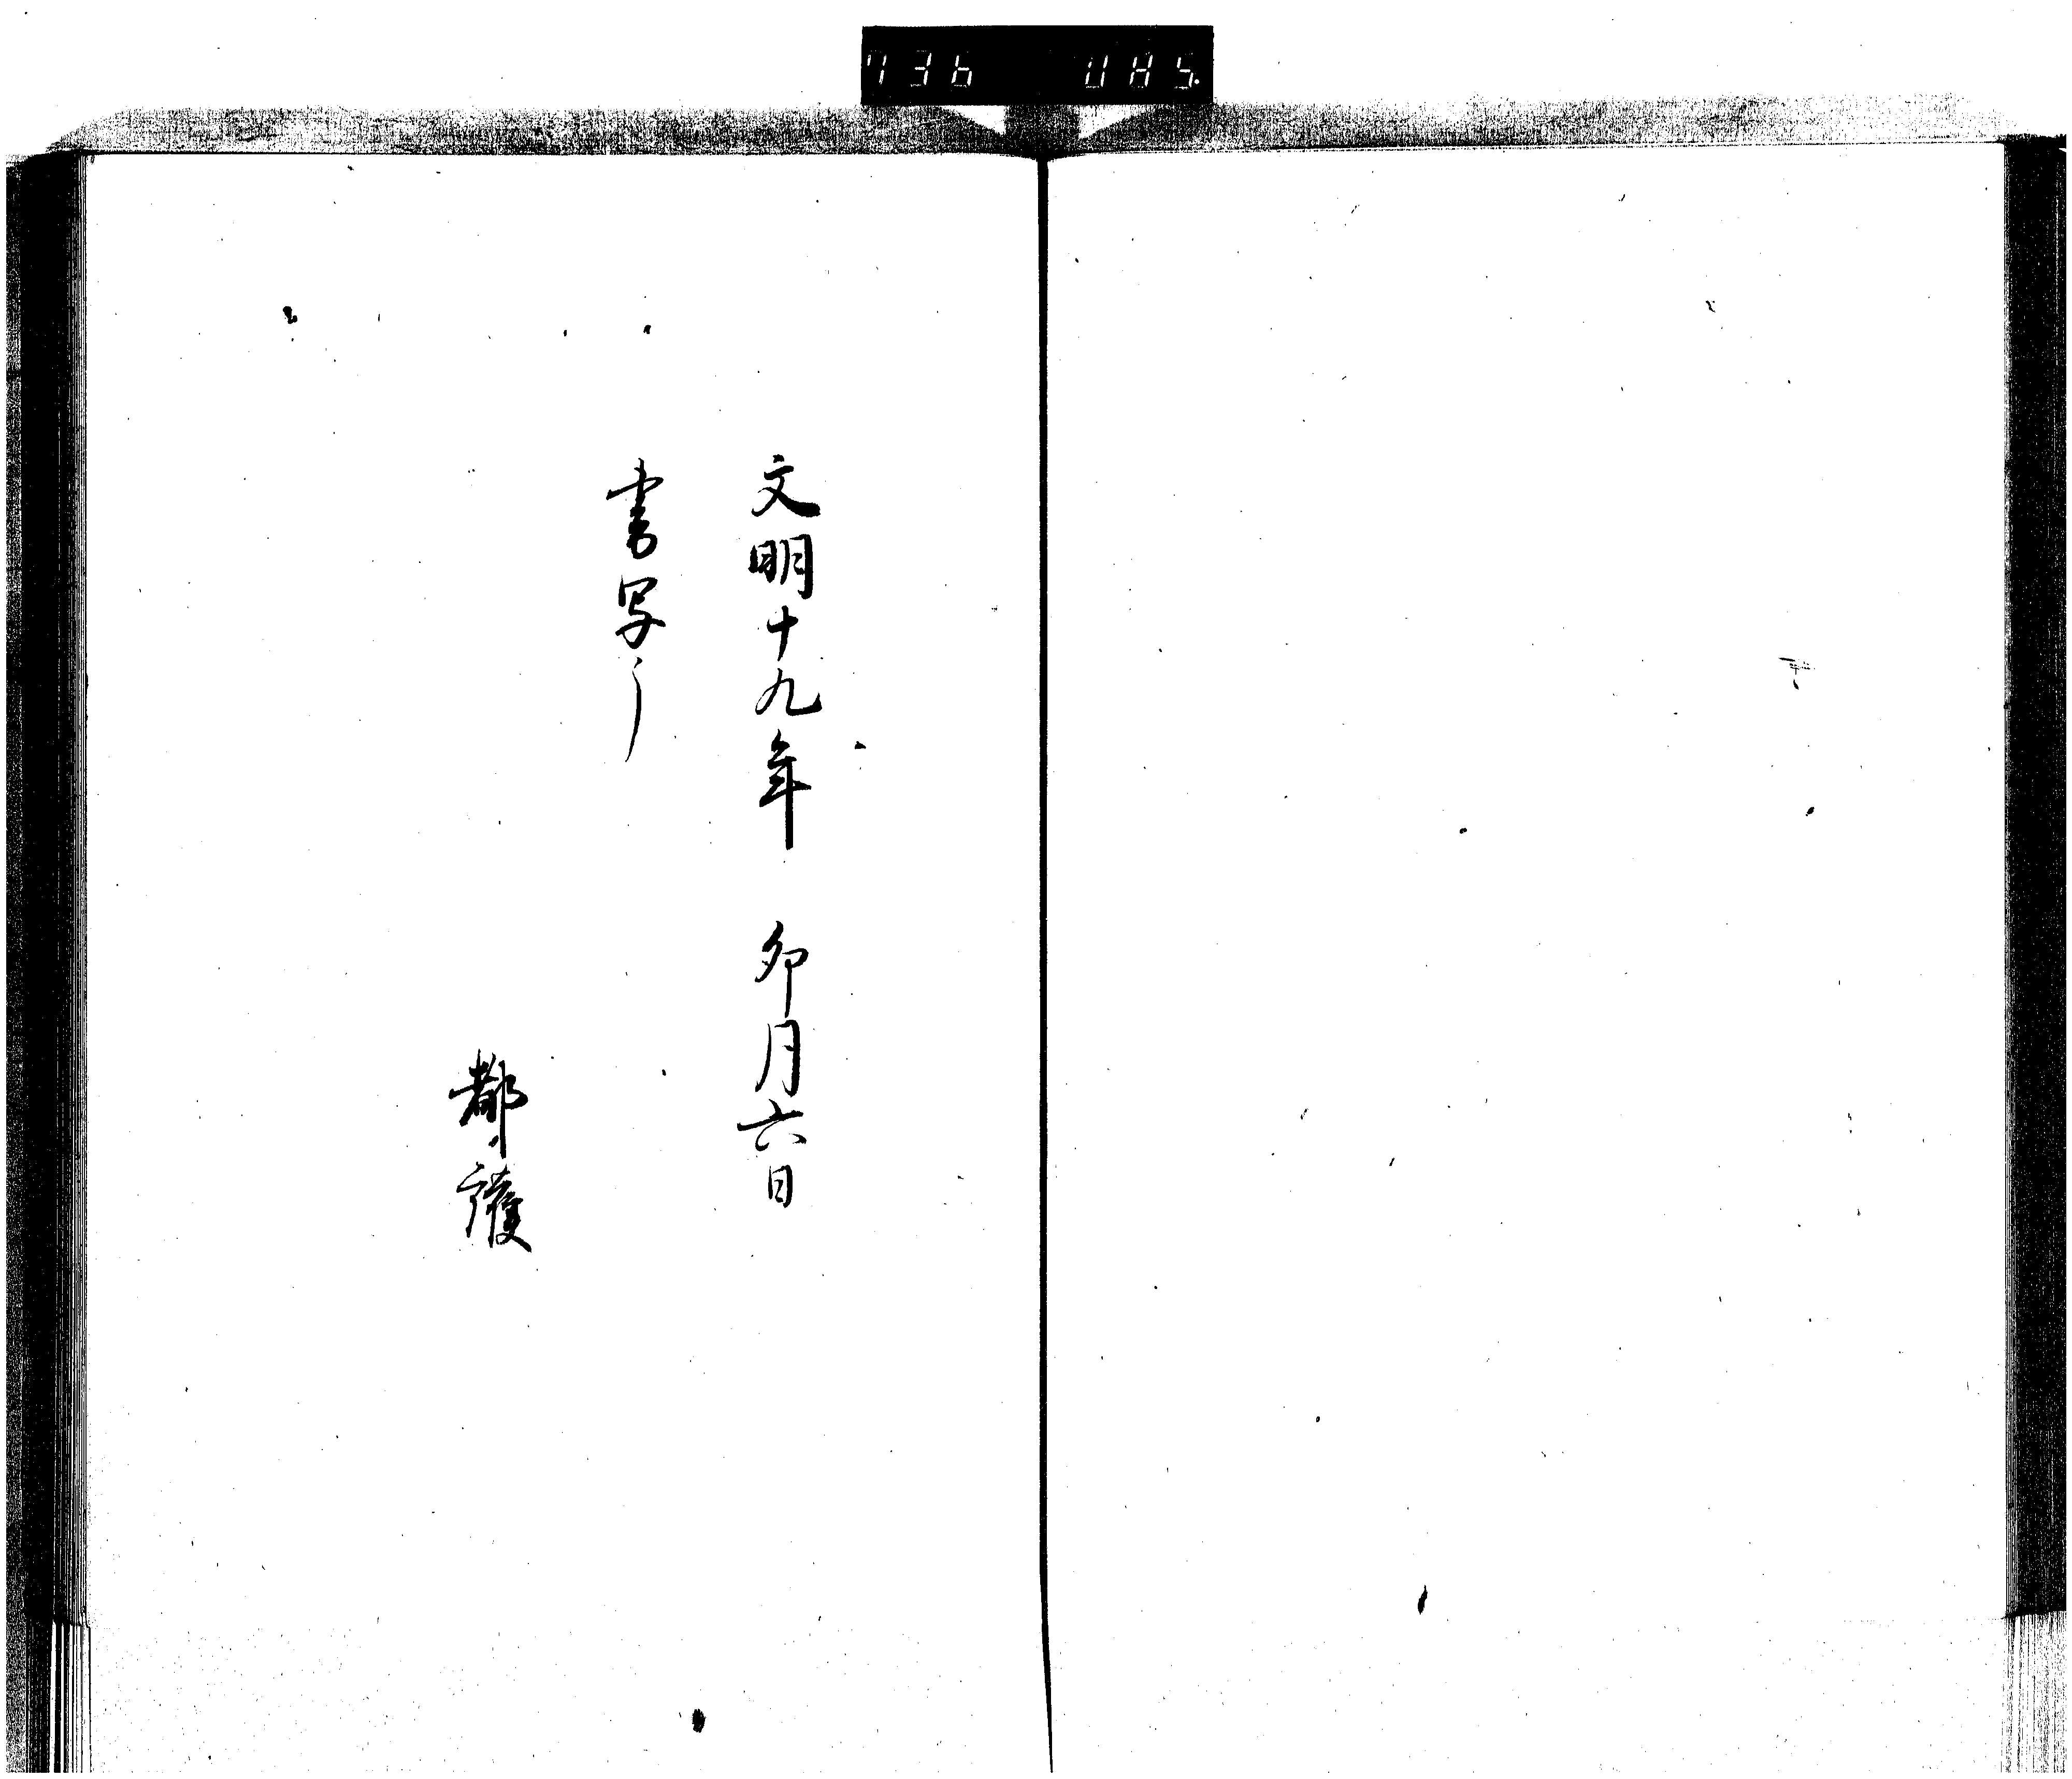 文明十九年 卯月六日
書写了
都護